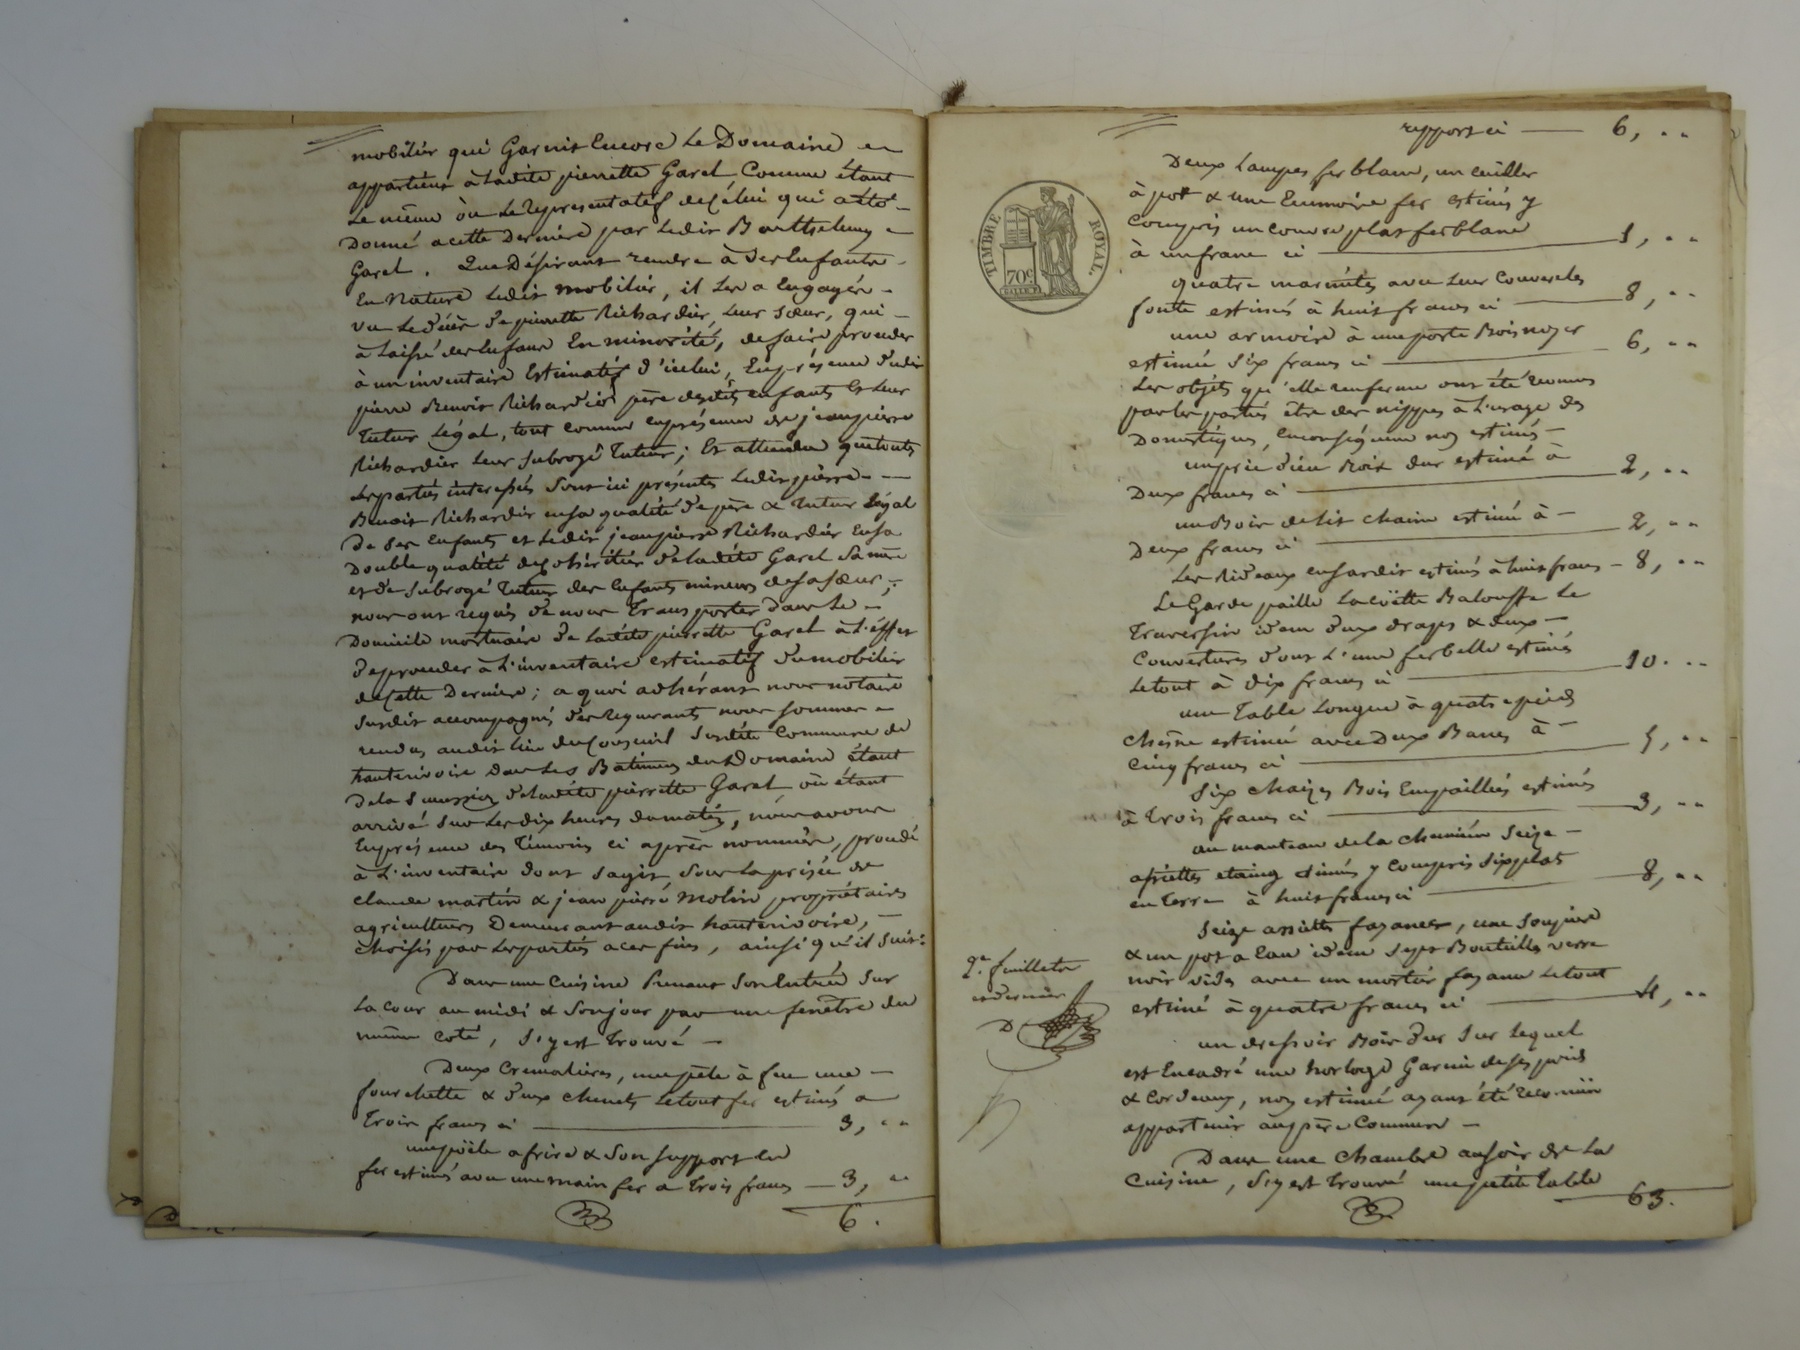 mobilier qui Garnit Encore Le Domaine en
appartient à Ladite pierrette Garel Comme étant
Le même ou Le Representatif de Célui qui a été
Donné a cette Dernière par Ledit Barthelemy
Garel. Que Désirant rendre à Ses Enfants
En Nature Ledit mobilier, il Les a Engagés
vu Le décès de pierrette Richardier, Leur Sœur, qui
à Laissé des Enfans En minorité, de faire proceder
à un inventaire Estimatif d'icelui, En présence dudit
pierre Benoit Richardier père desdits enfants et Leur
Tuteur Légal, tout comme en présence de jean pierre
Richardier Leur Subrogé Tuteur; Et attendu que toutes
Les parties interessés Sont ici présentes Ledit pierre
Benoit Richardier en sa qualité de père & Tuteur Légal
De Ses Enfants et Ledit jean pierre Richardier En sa
Double qualité de Cohéritier de Ladite Garel Sa mère
et de Subrogé Tuteur des Enfants mineurs de sa Sœur;
nous ont requis de nous Transporter Dans Le
Domicile mortuaire de Ladite pierrette Garel à L'effet
de proceder à L'inventaire estimatif du mobilier
de Cette Dernière; a quoi adhérant nous notaire
Susdit accompagné des Requerants nous Sommes
rendus audit Lieu de Susdite Commune de
hauterivoire Dans Les Batimens du Domaine étant
De La Succession de Ladite pierrette Garel où étant
arrivé Sur Les dix heures du matin, nous avons
En présence des Témoins ci après nommés, procedé
à L'inventaire Dont S'agit Sous La prisée de
claude martin & jean pierre Molin propriétaires
agriculteurs Demeurant audit hauterivoire,
choisis par Les parties a ces fins, ainsi qu'il Suit:
Dans une Cuisine Prenant Son Entrée Sur
La Cour au midi & Son jour par une fenêtre du
même coté, S'y est Trouvé
Deux Cremalières, une pèle à feu une
fourchette & deux chenets Le tout fer estimés a
Trois francs ci 3, "
une poële a frire & Son Support en
fer estimés avec une main fer a Trois francs 3, "
6.
report ci 6, "
Deux Lampes fer blanc, un cuiller
à pot & une Ecumoire fer estimés y
Compris un couvre plat fer blanc
à un franc ci 1, "
quatre marmites avec Leur Couvercles
fonte estimés à huit francs ci 8, "
une armoire à une porte Bois noyer
estimée Six francs ci 6, "
Les objets qu'elle renferme ont été reconnus
par Les parties être des nippes à L'usage des
Domestiques, En conséquence non estimés
un prie dieu Bois dur estimé à
Deux francs ci 2, "
un Bois de Lit chaine estimé à
Deux francs ci 2, "
Les Rideaux en sardis estimés à huit francs 8, "
Le Garde paille La coëtte Balouffe Le
Traversin idem deux drapes & deux
Couvertures dont L'une estimés
Le tout à dix francs ci 10. "
une Table Longue à quatre pieds
Chesne estimée avec Deux Bancs à
Cinq francs ci 5, "
Six chaizes Bois Empaillées estimées
à Trois francs ci 3, "
au manteau de la Cheminée Seize
assiettes etaing estimés y Compris Six plats
en Terre à huit francs ci 8, "
Seize assiettes fayances, une Soupiere
& un pot a Eau idem Sept Bouteilles verre
noir vides avec un mortier fayance Le tout
estimé à quatre francs ci 4, "
2e. feuillet
et dernier
D
un dressoir Bois dur Sur Lequel
est Encadré une horloge Garnie de Ses poids
& Cordeaux, non estimée ayant été reconnue
appartenir au père Commun
Dans une chambre au Soir de La
Cuisine, S'y est Trouvé une petite Table
63.
TIMBRE ROYAL
70c